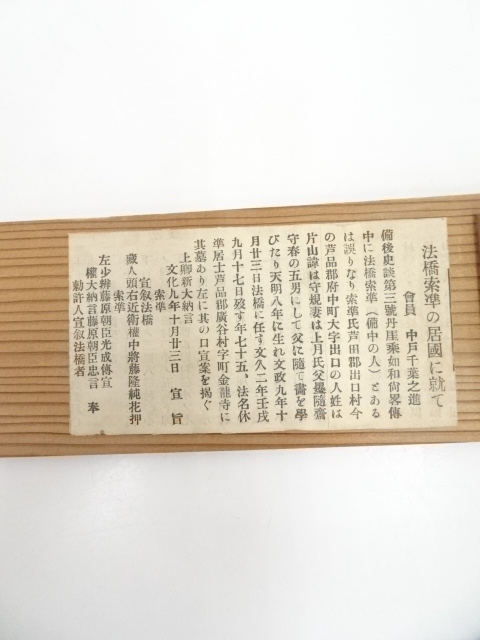 法橋索準の居國に就て
會員　中戸千葉之進
備後史談第三號丹厓乘如和尚畧傳
中に法橋索準（備中の人）とある
は誤りなり索準氏芦田郡出口村今
の芦品郡府中町大字出口の人姓は
片山諱は守規妻は上月氏父暴隨齋
守春の五男にして父に隨て畵を學
びたり天明八年に生れ文政九年十
月廿三日法橋に任す文久二年壬戌
九月十七日歿す年七十五、法名休
準居士芦品郡廣谷村字町金龍寺に
其墓あり左に其の口宣案を揭ぐ
上卿新大納言
文化九年十月廿三日　宣旨
索準
宣叙法橋
藏人頭右近衛權中將藤隆純花押
索準
宣叙法橋
左少辨藤原朝臣光成傳宣
權大納言藤原朝臣忠言　奉
勅許人宣叙法橋者